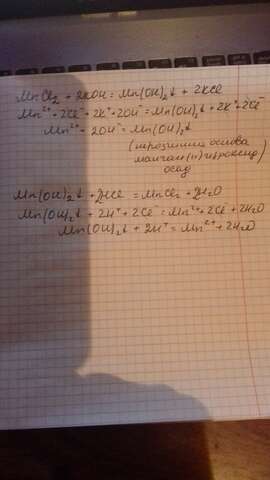 MnCl₂ + 2KOH = Mn(OH)₂↓ + 2KCl
Mn²⁺ + 2Cl⁻ + 2K⁺ + 2OH⁻ = Mn(OH)₂↓ + 2K⁺ + 2Cl⁻
Mn²⁺ + 2OH⁻ = Mn(OH)₂↓
основа
манган(II) гідроксид)
осад
Mn(OH)₂↓ + 2HCl = MnCl₂ + 2H₂O
Mn(OH)₂↓ + 2H⁺ + 2Cl⁻ = Mn²⁺ + 2Cl⁻ + 2H₂O
Mn(OH)₂↓ + 2H⁺ = Mn²⁺ + 2H₂O